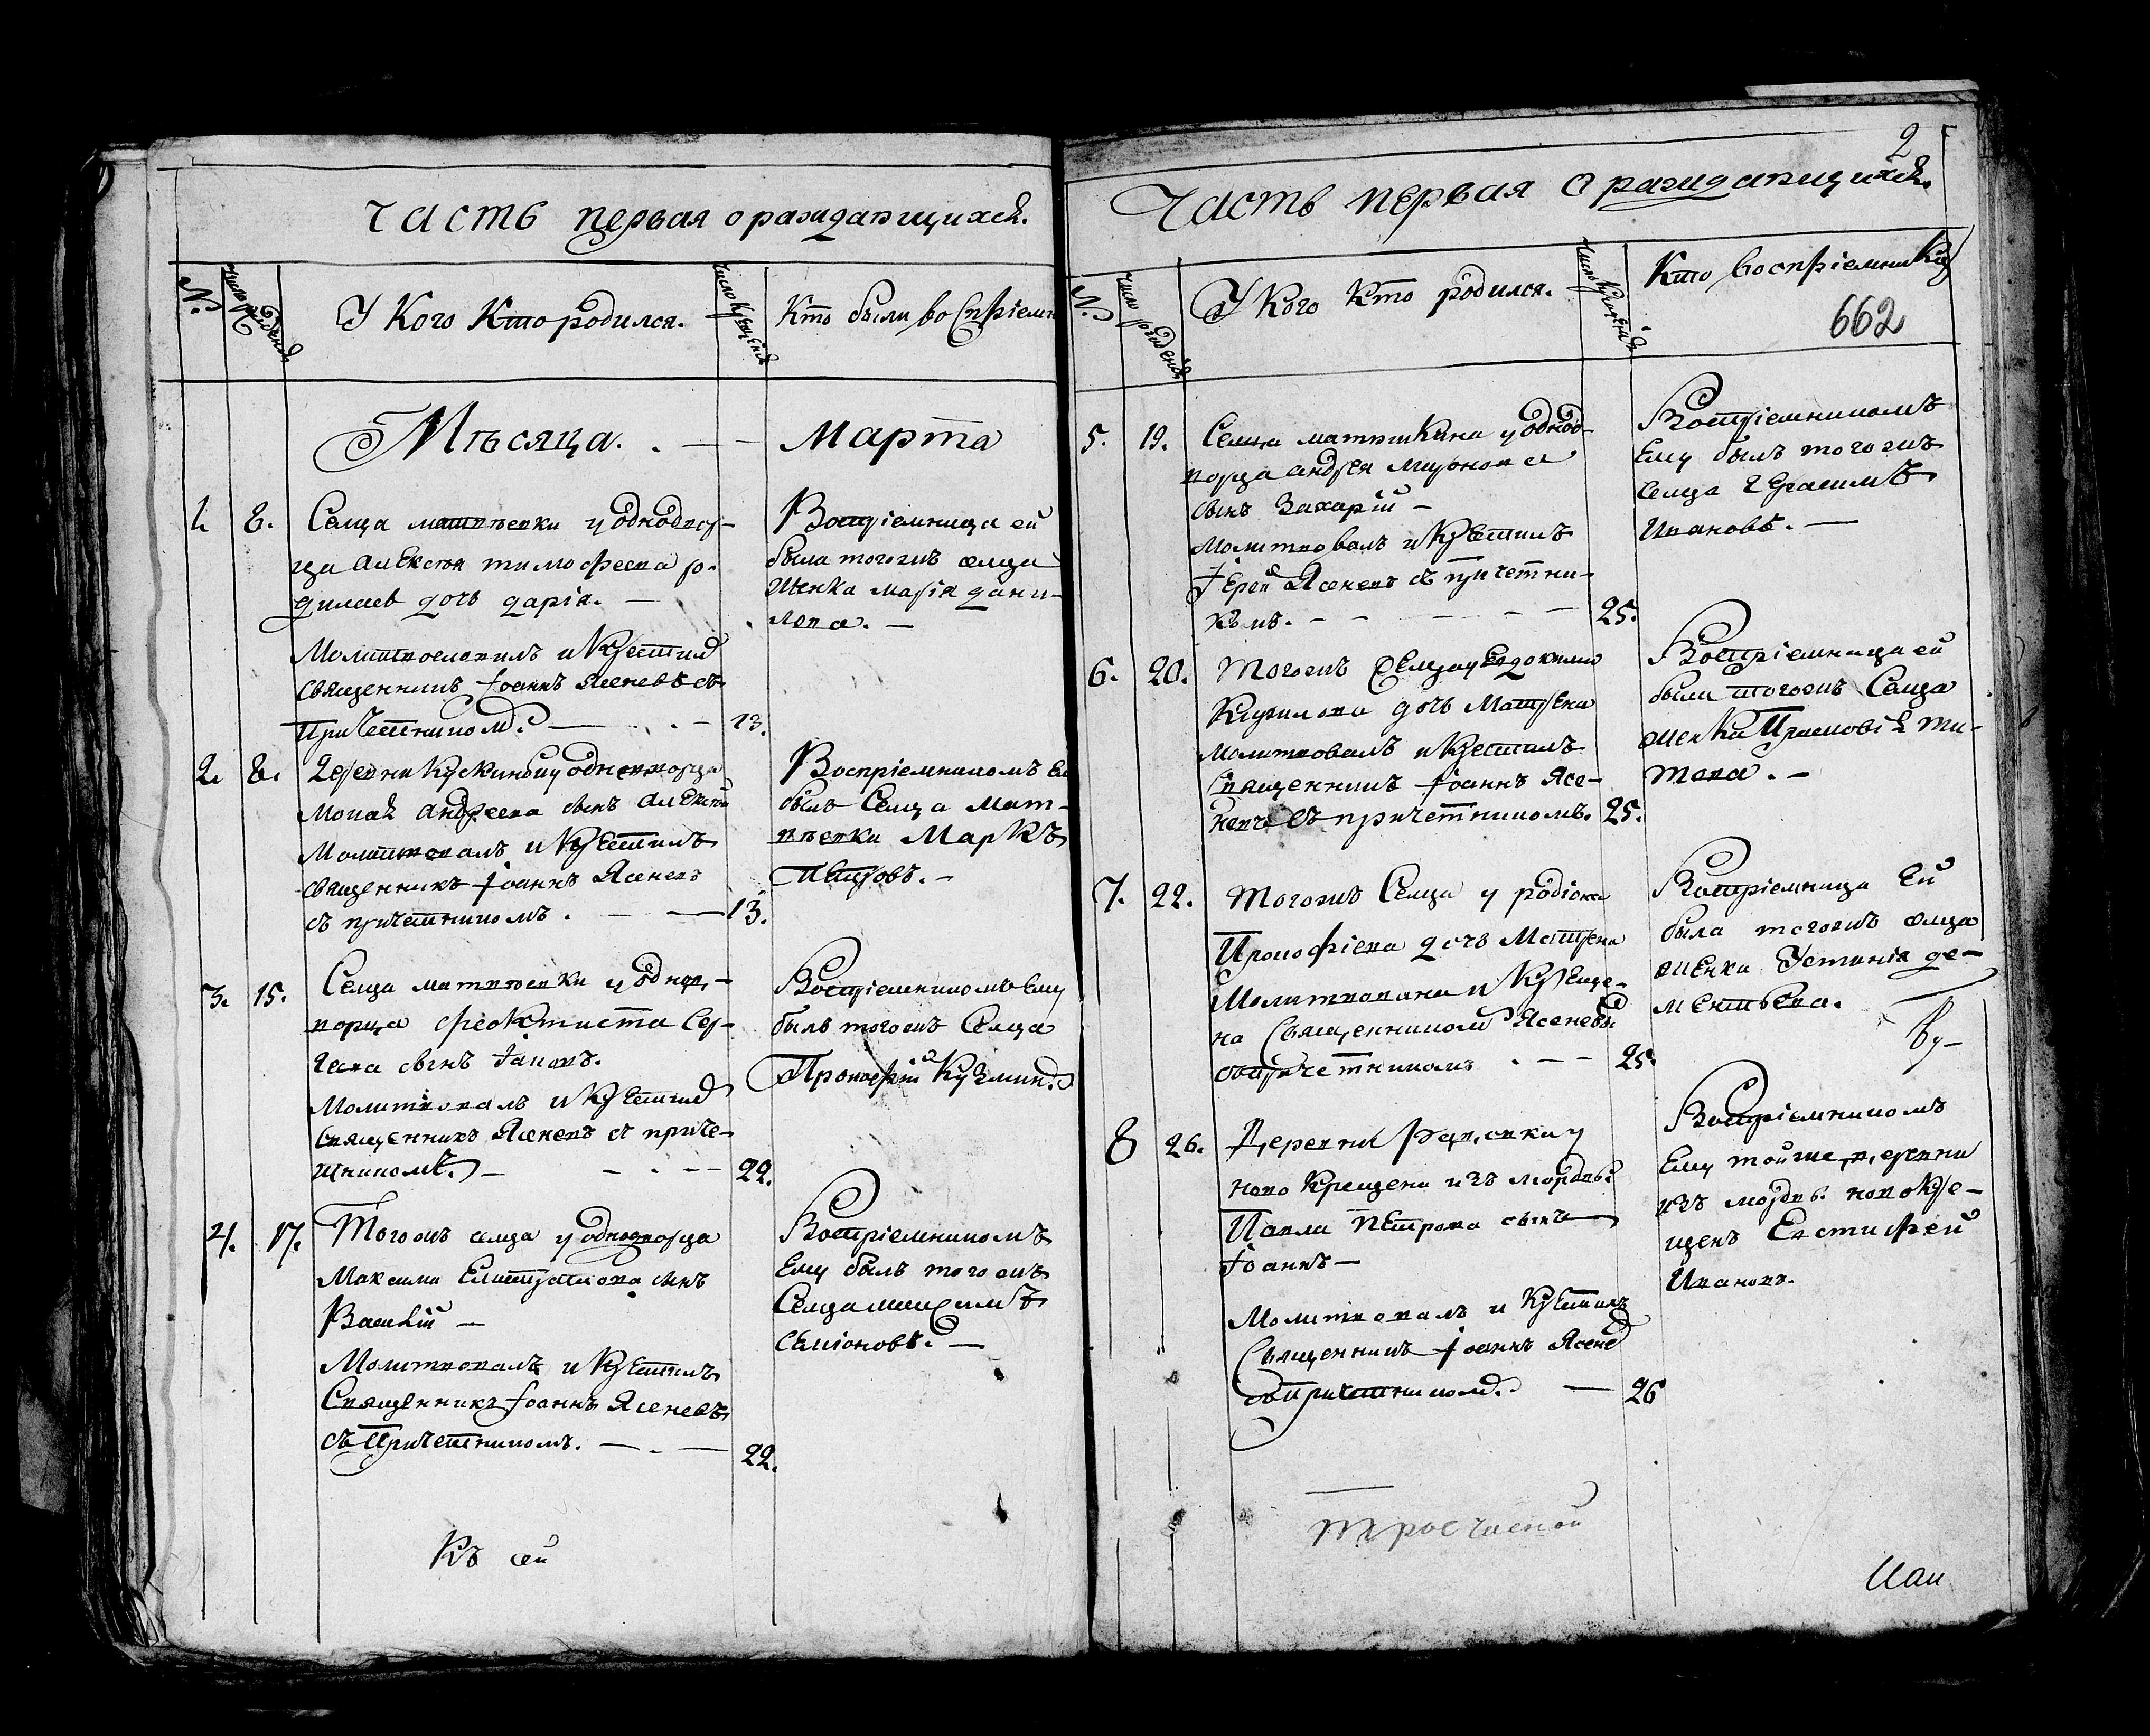 Часть первая о раждающихся.
№.
число рождения
У Кого Кто родился.
число крещения
Кто были воспріемн
Мѣсяца. Марта
1. 8. Селца матвѣевки у однодвор-
ца алексѣя тимофеева ро-
дилась дочь дарія. —
Молитвословилъ и крестил
священникъ Іоаннъ Ясеневъ съ
причетником. — 13.
Воспріемница ей
была тогожъ селца
женка марія дани-
лова. —
2. 8. деревни у однодворца
андреева сынъ алексѣй
Молитвовалъ и крестилъ
священникъ Іоаннъ Ясеневъ
съ причетникомъ. — 13.
Воспріемникомъ ев
былъ Селца Мат-
вѣевки Маркъ
Петровъ. —
3. 15. Селца матвѣевки у однод-
ворца феоктиста Сер-
геева сынъ Іаковъ.
Молитвовалъ и крестил
священникъ Ясеневъ съ приче-
тникомъ. — 22.
Воспріемникомъ ему
былъ тогожъ Селца
Прокофій Кузмин.
4. 17. Тогожъ селца у однодворца
Максима сынъ
Василій —
Молитвовалъ и крестилъ
Священникъ Іоаннъ Ясеневъ
съ Причетникомъ. — 22.
Воспріемникомъ
Ему былъ тогожъ
Селца максимъ
Семіоновъ. —
Къ сей
2
Часть первая О раждающихся.
№.
число рождения
У Кого Кто родился.
число крещения
Кто воспріемники
662
5. 19. Селца матюшкина у однод-
ворца андрея миронова
сынъ Захарій —
Молитвовалъ и крестилъ
Іерей Ясеневъ съ причетни-
комъ. — 25.
Воспріемникомъ
Ему былъ тогожъ
селца Герасимъ
Ивановъ. —
6. 20. Тогожъ Селца у Евдокима
Кирилова дочь Матрена
Молитвовалъ и крестилъ
Священникъ Іоаннъ Ясе-
невъ съ причетникомъ. 25.
Воспріемница ей
была тогожъ Селца
женка Ти-
това. —
7. 22. Тогожъ Селца у родіона
Прокофіева дочь Матрена
Молитвована и Креще-
на Священником Ясеневы
съ причетникомъ — 25.
Воспріемница Ей
была тогожъ селца
женка Устинія де-
ментьева.
Ву-
8 26. Деревни у
ново крещена изъ мордвы
Павла Петрова сынъ
Іоаннъ —
Молитвовалъ и крестилъ
Священникъ Іоаннъ Ясенев
съ причетником. — 26
Воспріемникомъ
Ему тойже деревни
изъ мордвы новокре-
щенъ Евстифей
Ивановъ.